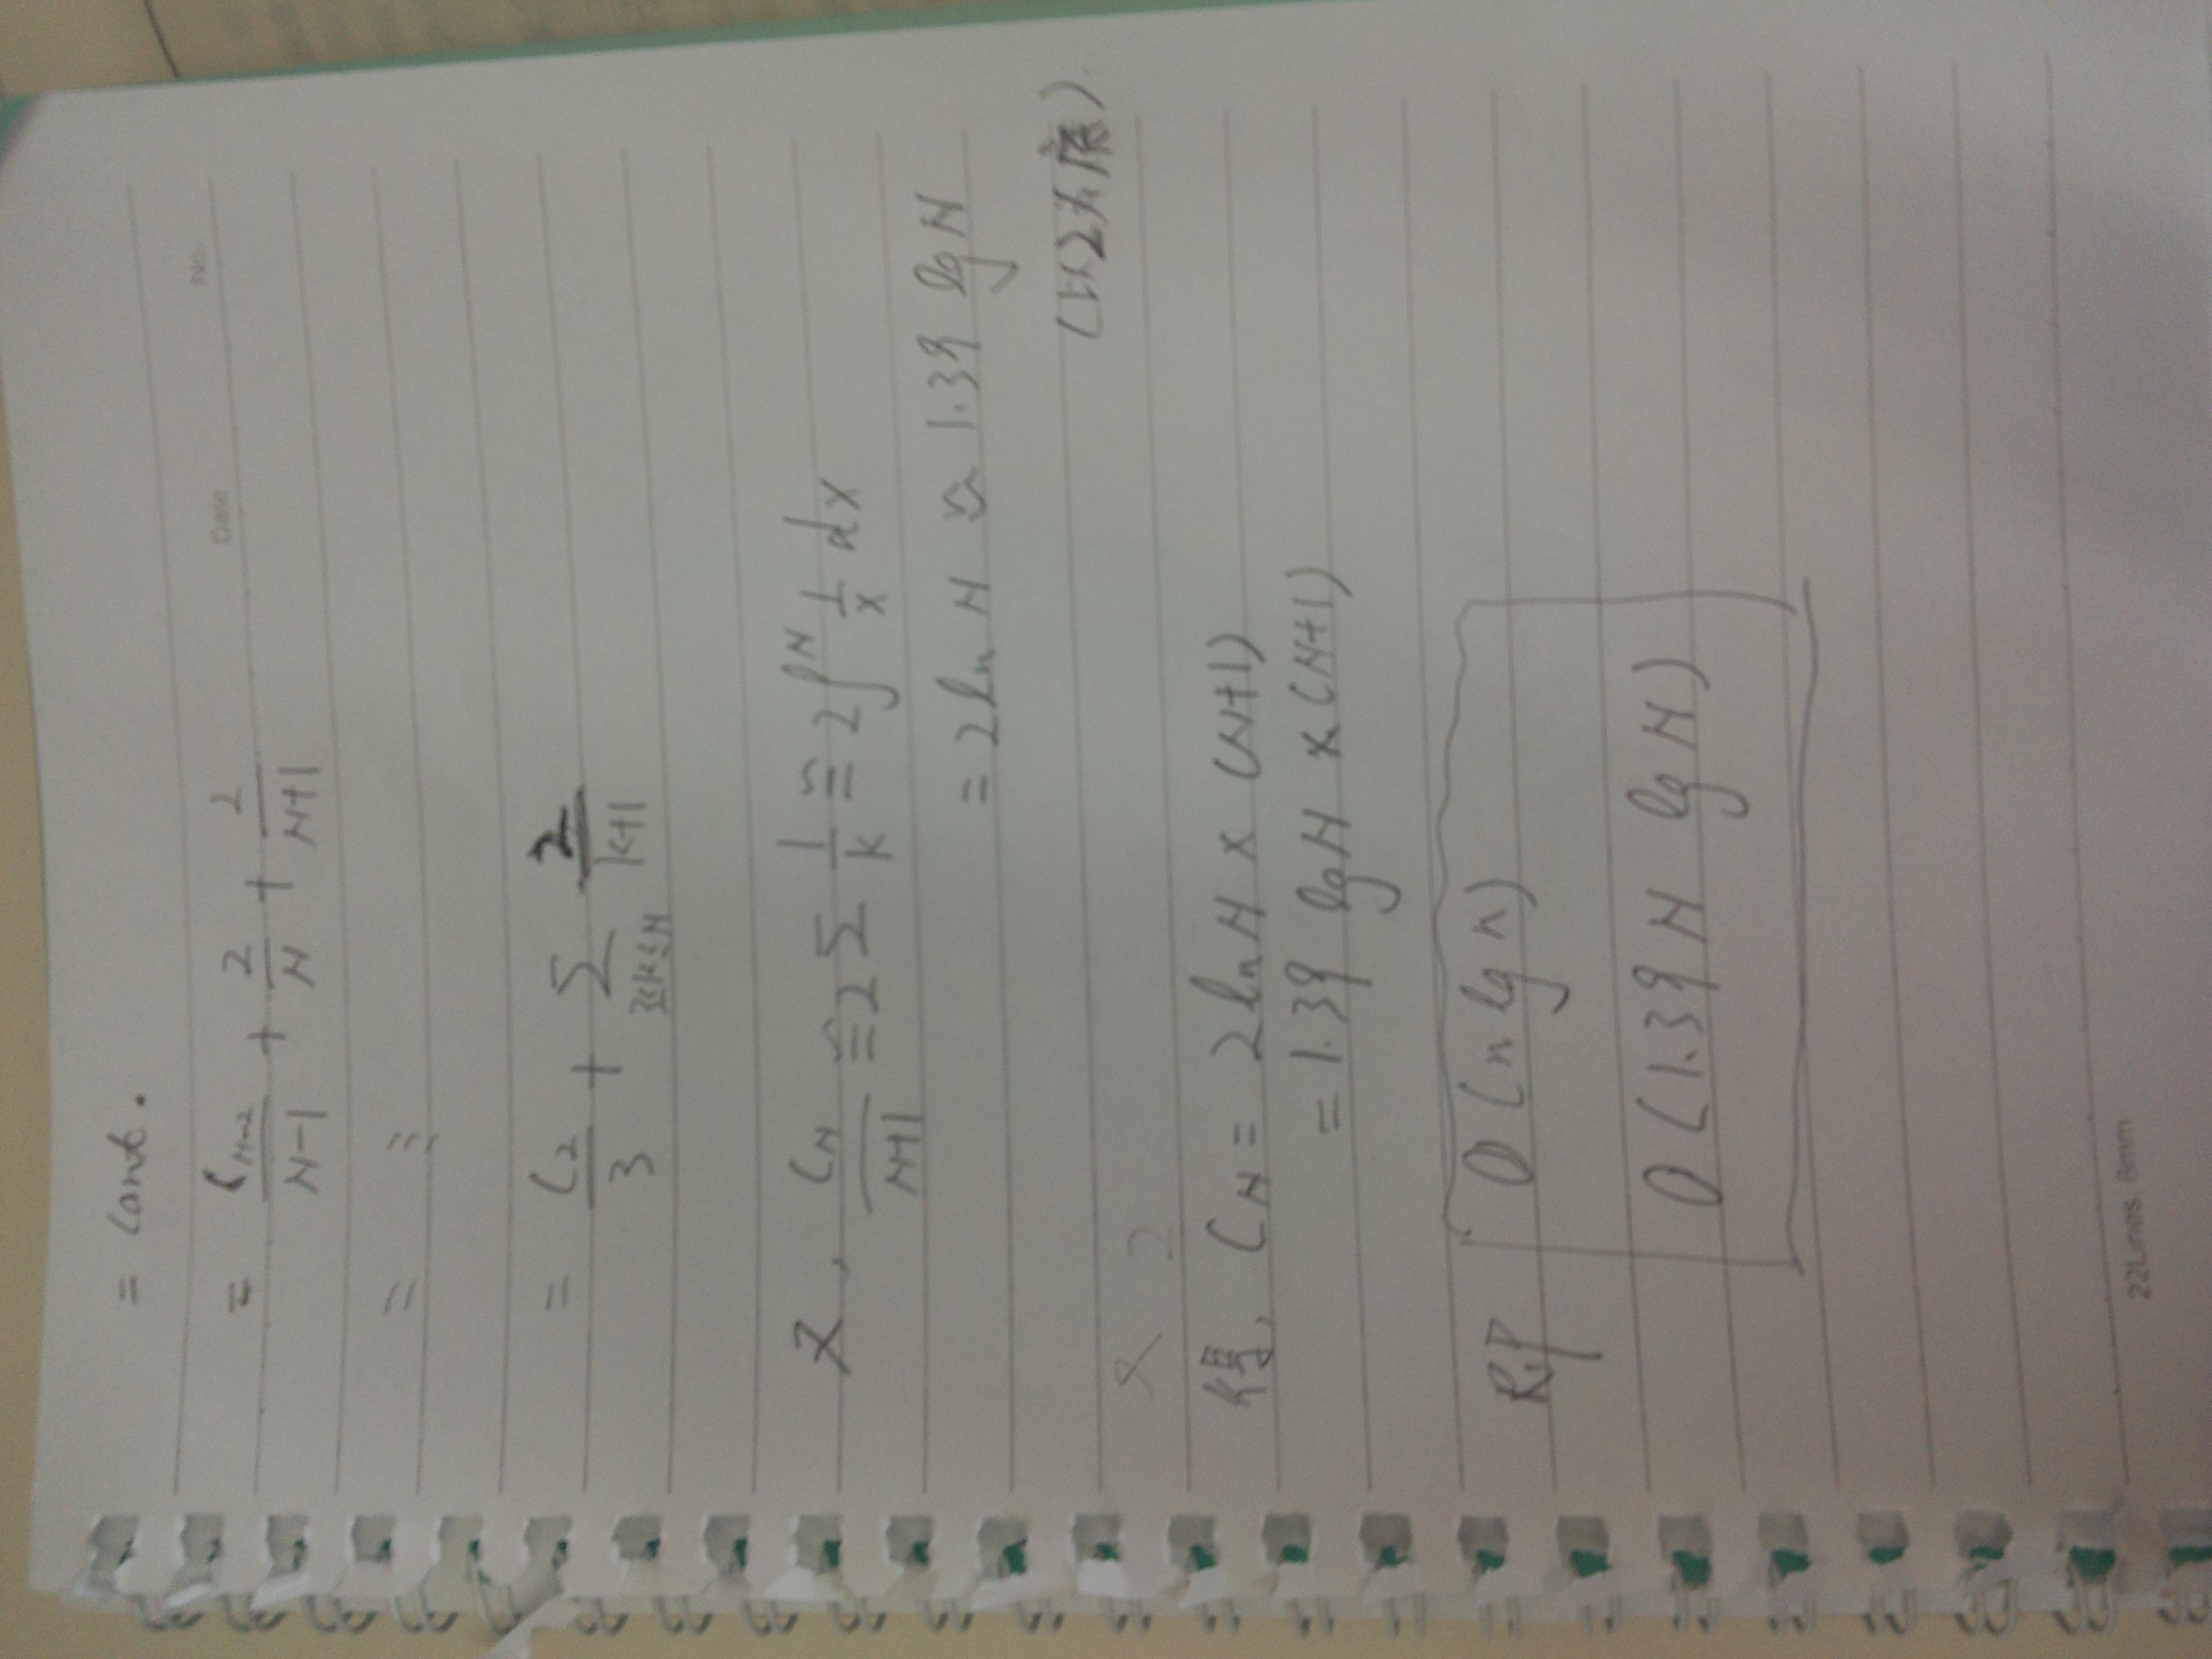 = cont.
Date No.
= C_{N-2}/(N-1) + 2/N + 2/(N+1)
= ⋮
= C_2/3 + Σ_{3≤k≤N} 2/(k+1)
又, C_N/(N+1) ≅ 2 Σ 1/k ≅ 2∫^N 1/x dx
= 2 ln N ≈ 1.39 lg N
(以2为底)
得, C_N = 2 ln N × (N+1)
= 1.39 lg N × (N+1)
即 O(n lg n)
O(1.39 N lg N)
22Lines 8mm